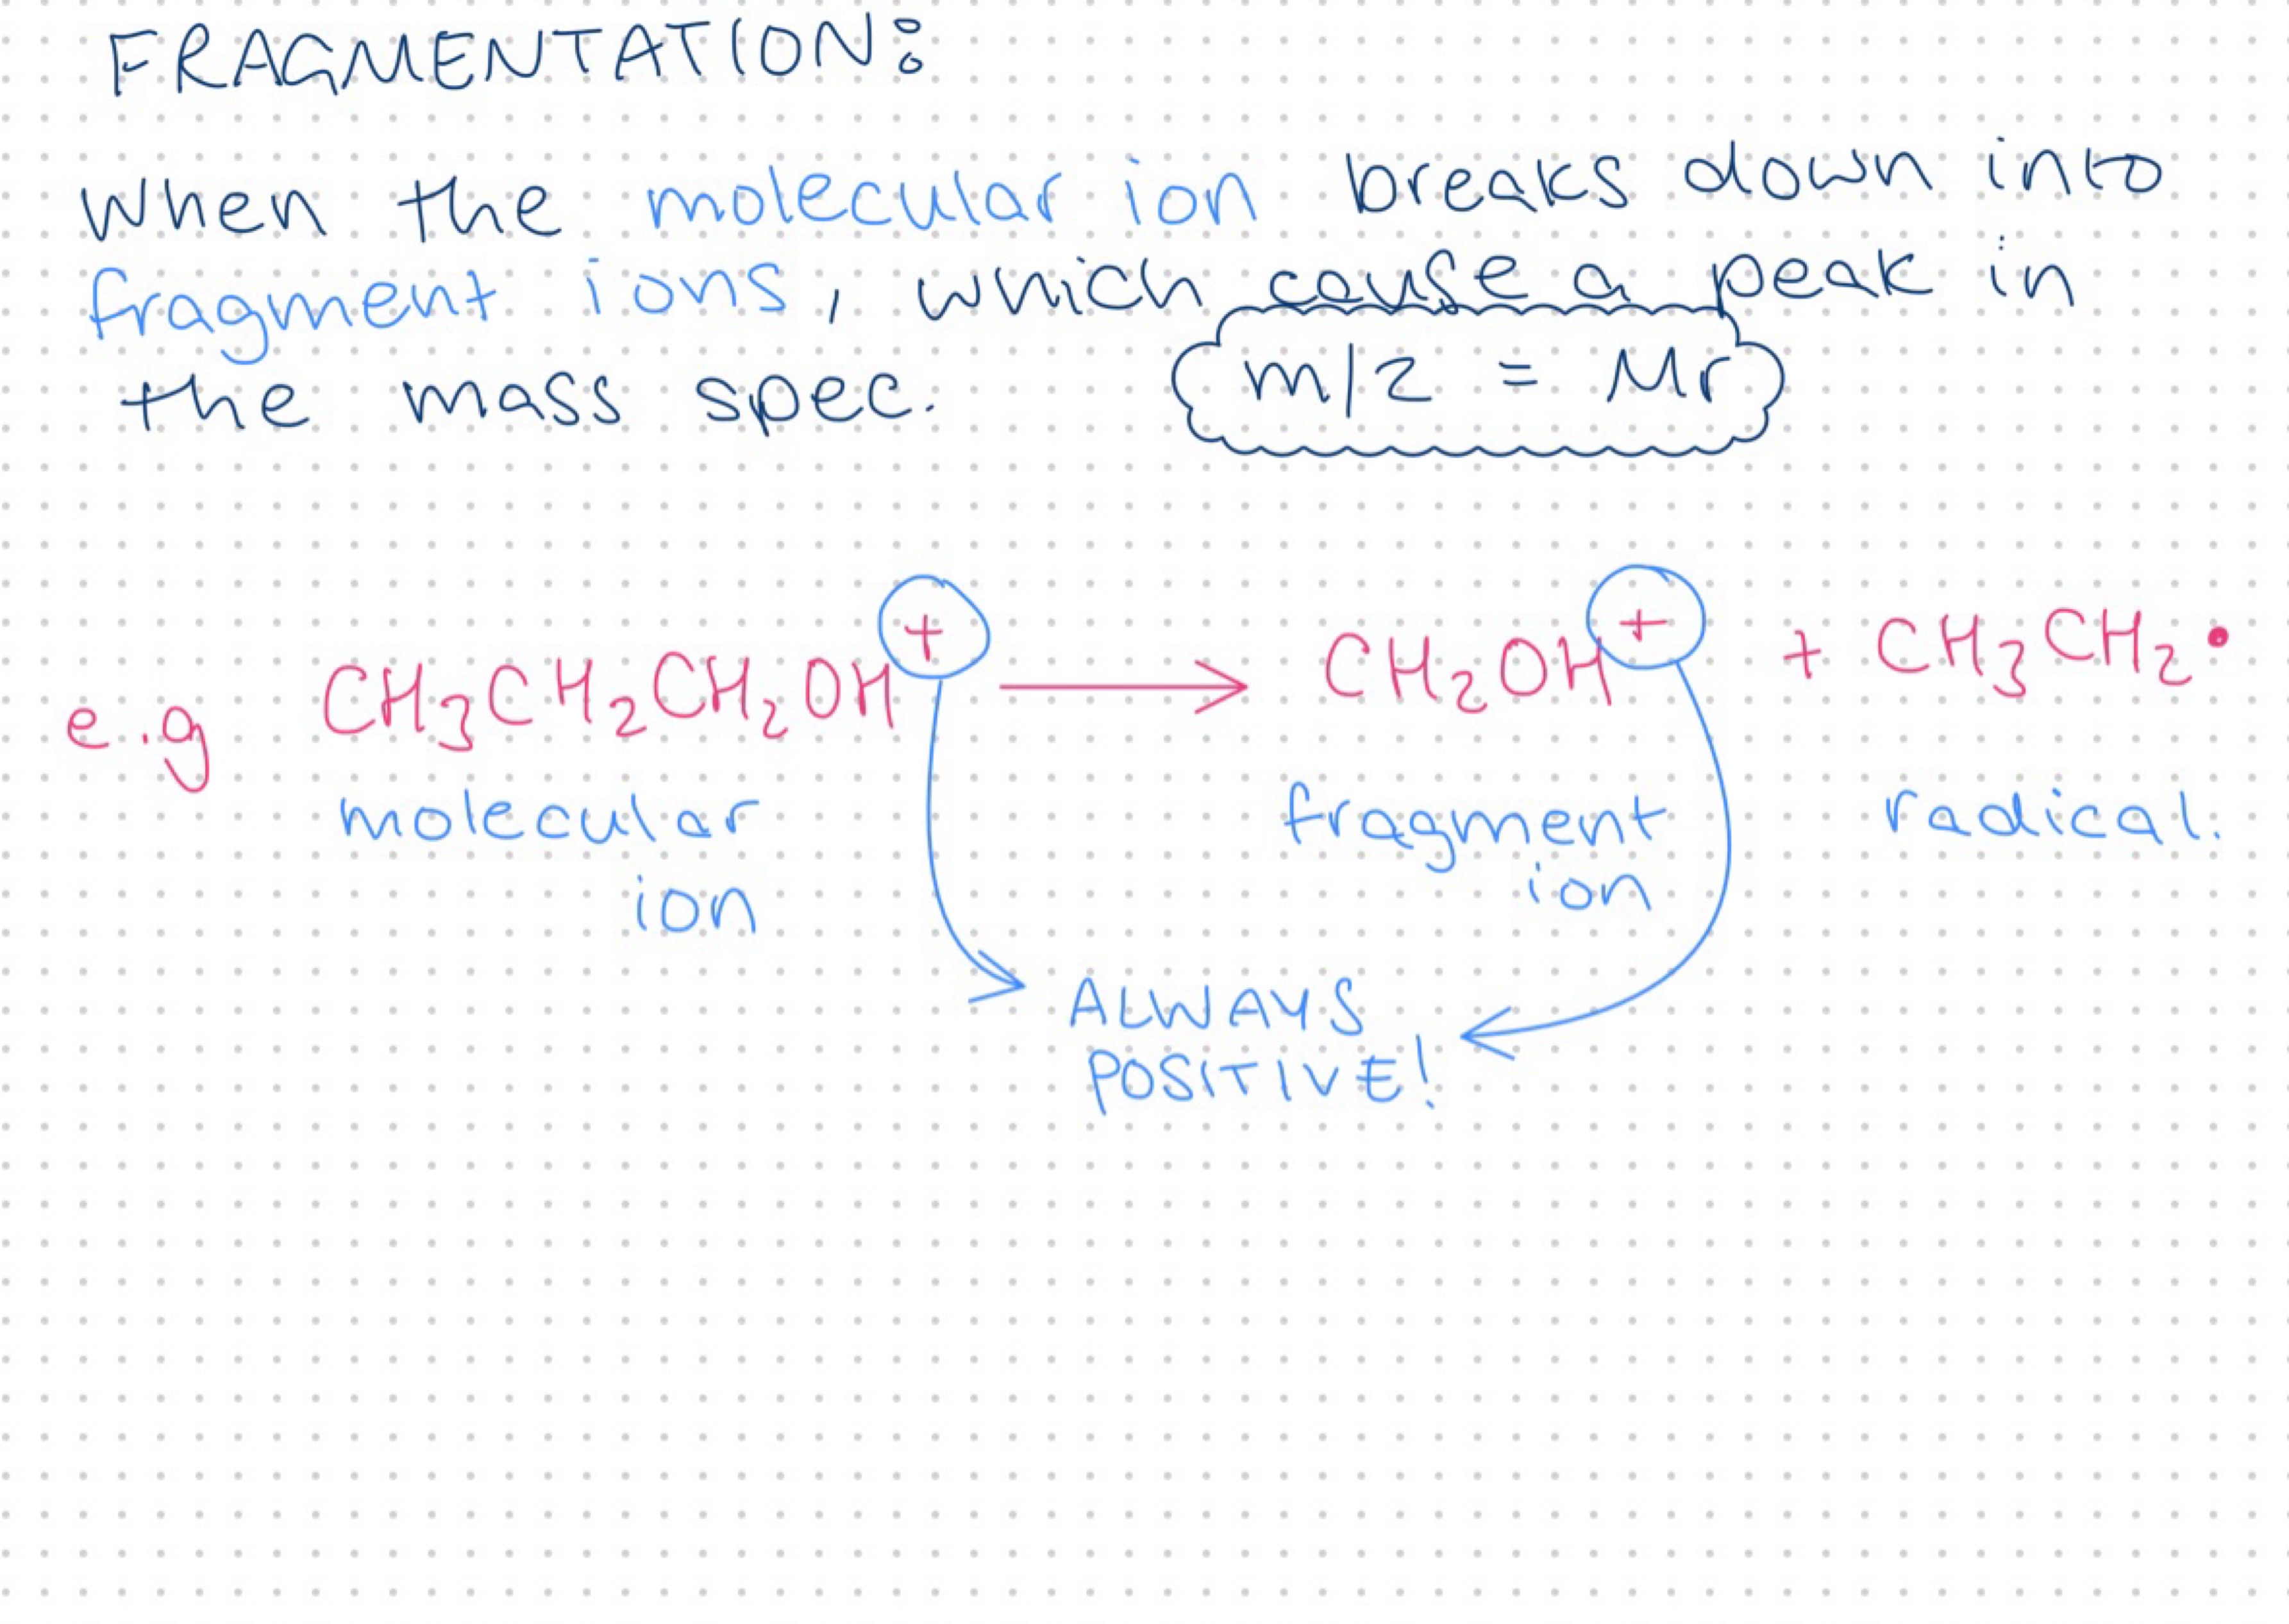 FRAGMENTATION:
When the molecular ion breaks down into
fragment ions, which cause a peak in
the mass spec.
m/z = Mr
e.g CH₃CH₂CH₂OH⁺ → CH₂OH⁺ + CH₃CH₂•
molecular ion
fragment ion
radical.
ALWAYS
POSITIVE!